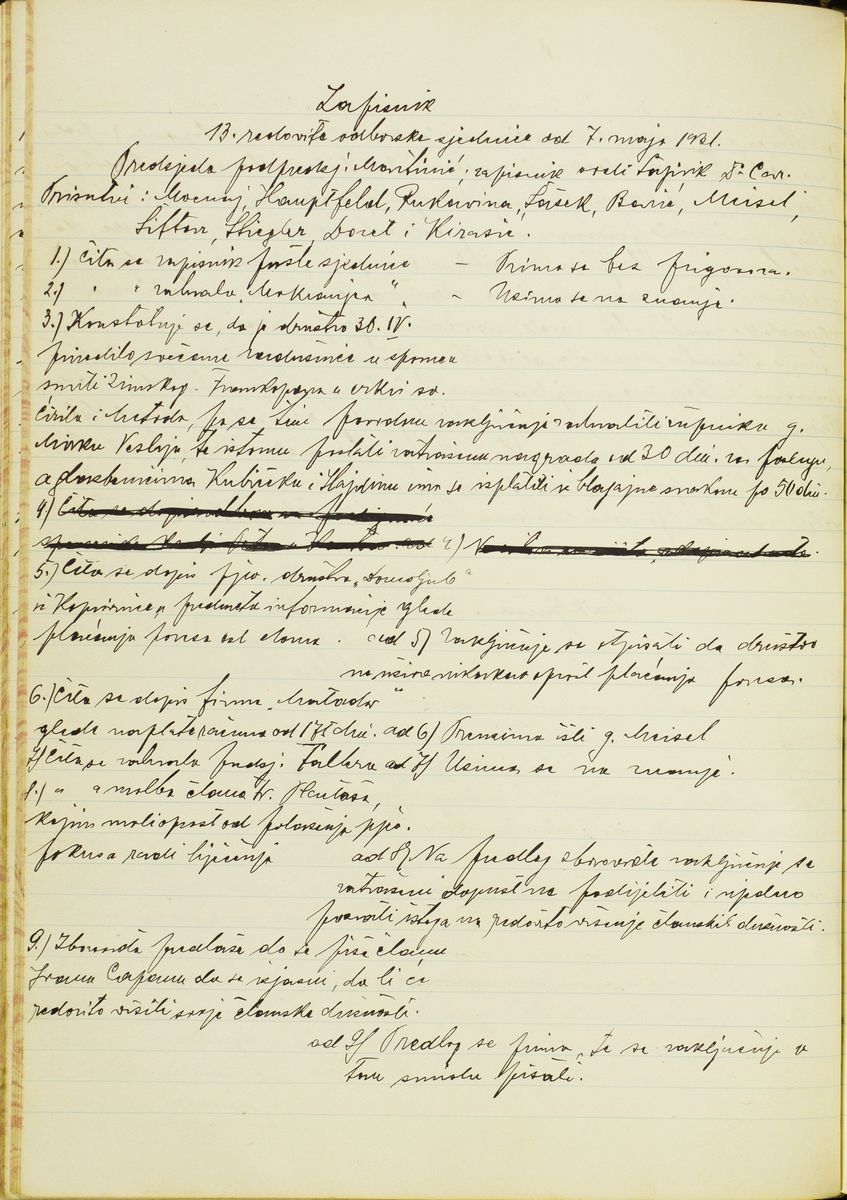 Zapisnik
13. redovite odborske sjednice od 7. maja 1931.
Predsjeda podpredsj. Martinić; zapisnik vodi
Prisutni: Hauptfeld, Rukavina, Šašek, Barić, Meisel,
Siftar, Stiegler, Doret i Kirasić.
1.) Čita se zapisnik prošle sjednice – Prima se bez prigovora.
2.) " " zahvala „Mokranjca" – Uzima se na znanje.
3.) Konstatuje se, da je društvo 30. IV.
priredilo svečane zadušnice u spomen
smrti Zrinskog - Frankopana u crkvi sv.
Ćirila i Metoda, pa se tim povodom zaključuje zahvaliti župniku g.
Mirku te istomu poslati zatraženu nagradu od 30 din. za
a glazbenicima Kubičeku i ima se isplatiti iz blagajne svakome po 50 din.
4)
4)
5.) Čita se dopis pjev. društva „Domoljub"
iz Koprivnice u predmetu informacije glede
plaćanja poreza od doma. ad 5) Zaključuje se otpisati da društvo
ne uživa nikakav oprost plaćanja poreza.
6.) Čita se dopis firme „Matador"
glede naplate računa od 171 din. ad 6) Preuzima isti g. Meisel
7) Čita se zahvala predsj. Fallera ad 7) Uzima se na znanje.
8.) " " molba člana N.
kojim moli opost od polaženja pjev.
pokusa radi liječenja ad 8) Na predlog zborovođe zaključuje se
zatraženi dopust ne podijeliti i ujedno
pozvati istoga na redovito vršenje članskih dužnosti.
9.) Zborovođa predlaže da se piše članu
Ivanu Capanu da se izjasni, da li će
redovito vršiti svoje članske dužnosti.
ad 9) Predlog se prima, te se zaključuje u
tom smislu pisati.